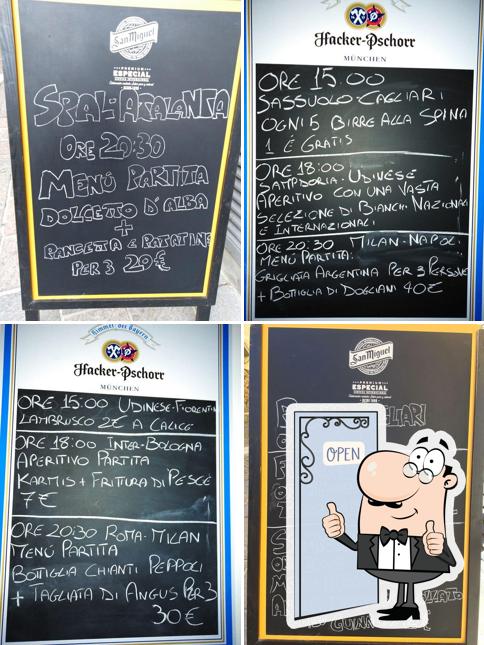 San Miguel
PREMIUM
ESPECIAL
SPAL-ATALANTA
ORE 20:30
MENÚ PARTITA
DOLCETTO D'ALBA
+
PANCETTA E PATATINE
PER 3 20€
Hacker-Pschorr
MÜNCHEN
ORE 15.00
SASSUOLO-CAGLIARI
OGNI 5 BIRRE ALLA SPINA
1 È GRATIS
ORE 18:00
SAMPDORIA-UDINESE
APERITIVO CON UNA VASTA
SELEZIONE DI BIANCHI NAZIONALI
E INTERNAZIONALI
ORE 20:30 MILAN-NAPOLI
MENÚ PARTITA:
GRIGLIATA ARGENTINA PER 3 PERSONE
+ BOTTIGLIA DI DOGLIANI 40€
Himmel der Bayern
Hacker-Pschorr
MÜNCHEN
ORE 15:00 UDINESE-FIORENTIN
LAMBRUSCO 2€ A CALICE
ORE 18:00 INTER-BOLOGNA
APERITIVO PARTITA
KARMIS + FRITTURA DI PESCE
7€
ORE 20:30 ROMA-MILAN
MENÚ PARTITA
BOTTIGLIA CHIANTI PEPPOLI
+ TAGLIATA DI ANGUS PER 3
30€
San Miguel
PREMIUM
ESPECIAL
OPEN